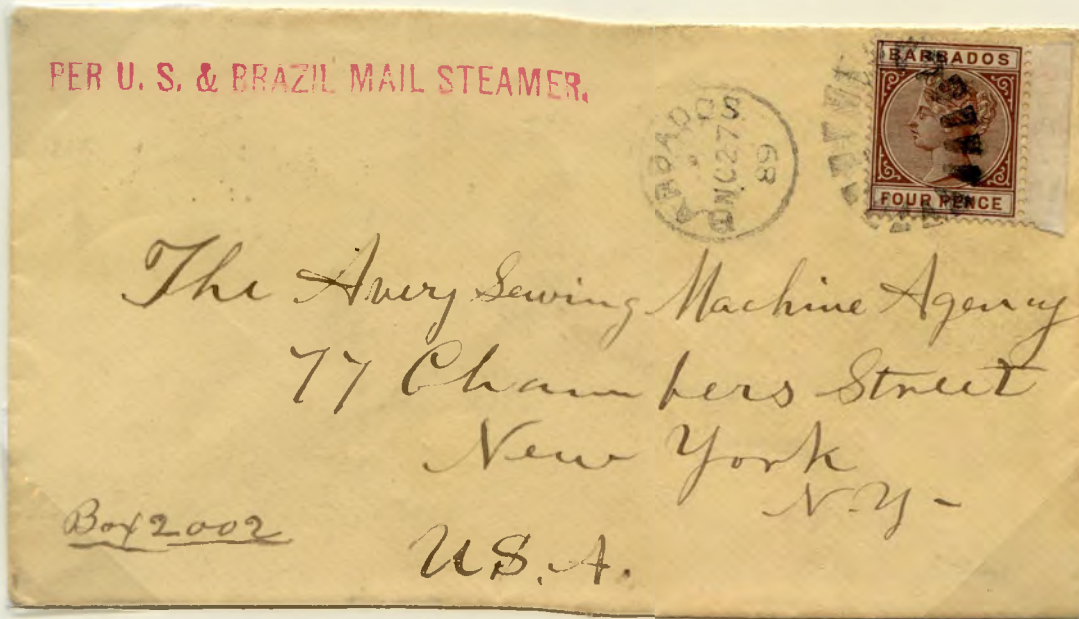 PER U. S. & BRAZIL MAIL STEAMER.
BARBADOS
FOUR PENCE
BARBADOS
27
The Avery Sewing Machine Agency
77 Chambers Street
New York
N.Y-
Box 2002
U.S.A.